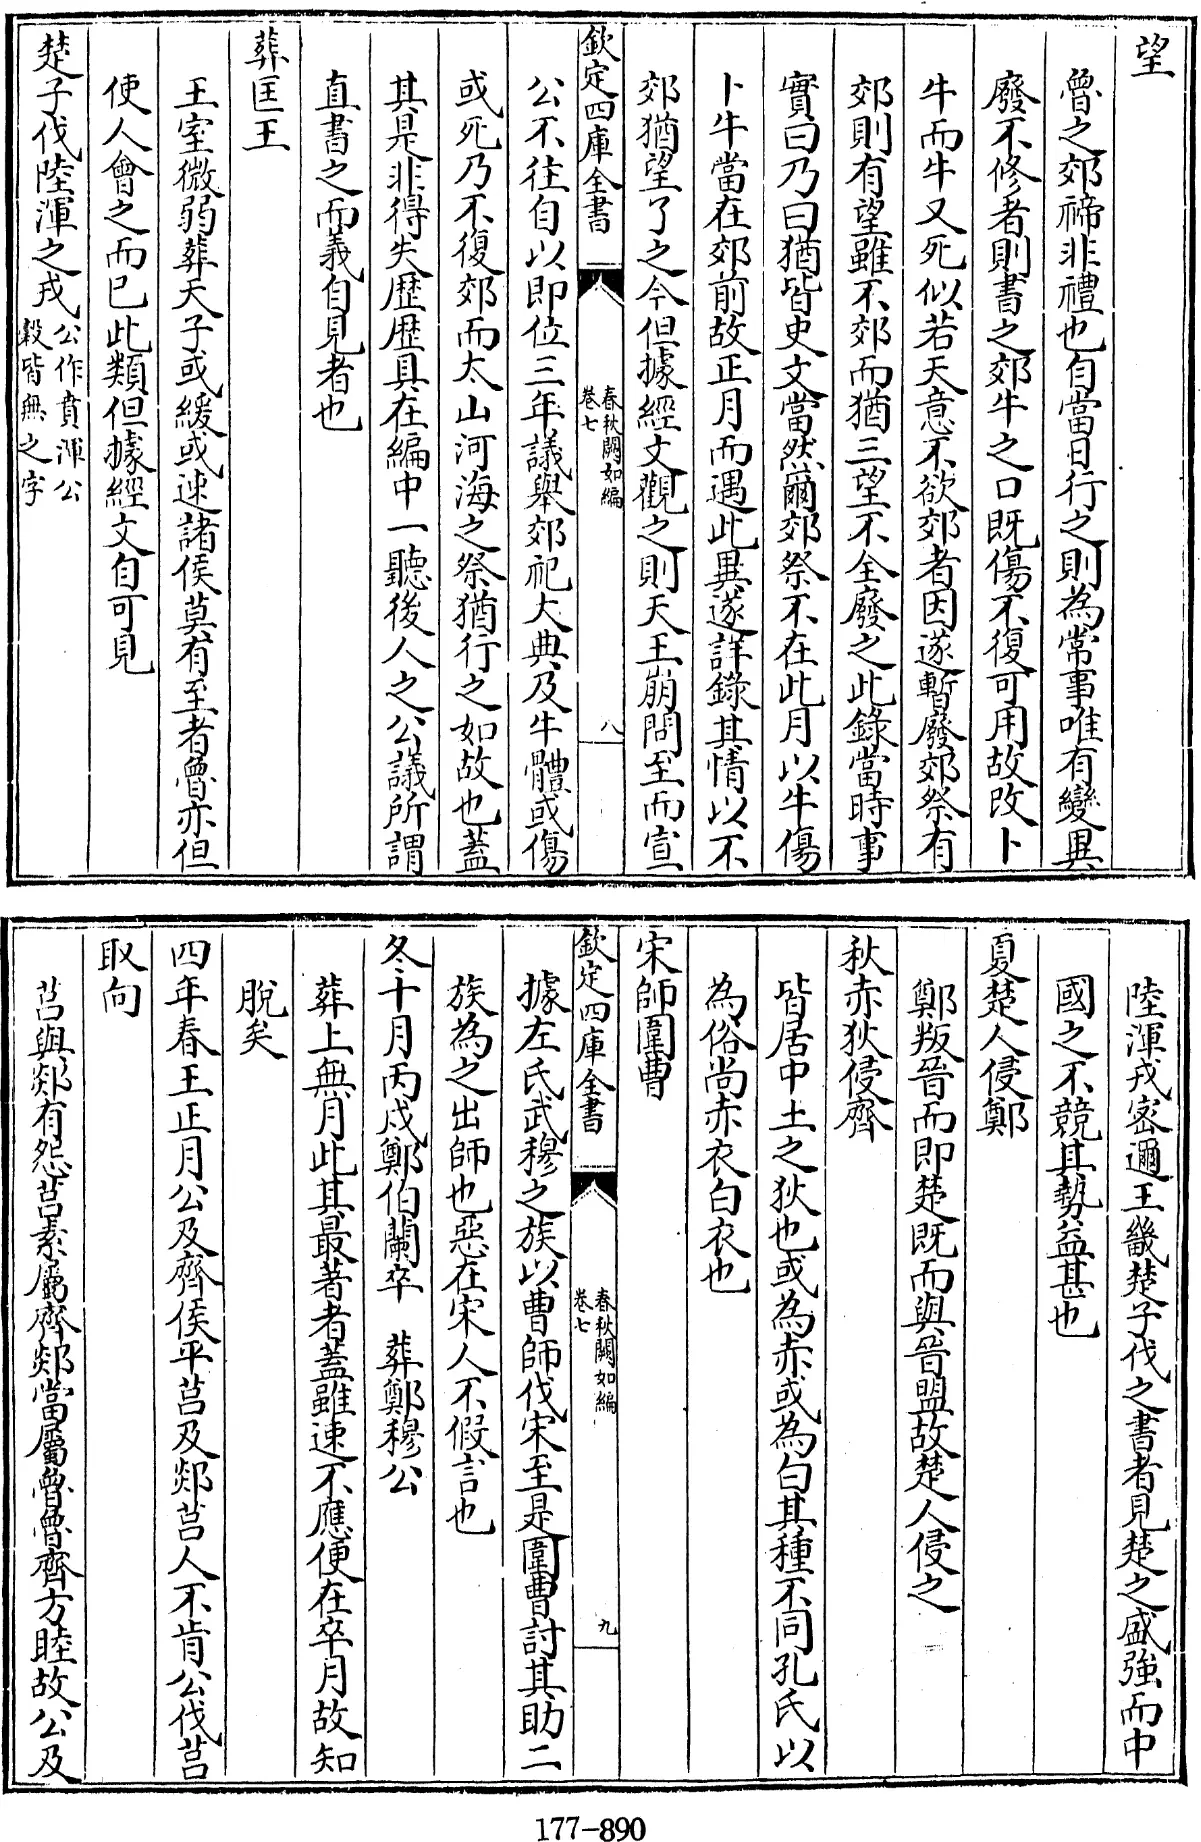 望
魯之郊禘非禮也自當日行之則為常事唯有變異
廢不修者則書之郊牛之口既傷不復可用故改卜
牛而牛又死似若天意不欲郊者因遂暫廢郊祭有
郊則有望雖不郊而猶三望不全廢之此錄當時事
實曰乃曰猶皆史文當然爾郊祭不在此月以牛傷
卜牛當在郊前故正月而遇此異遂詳錄其情以不
郊猶望了之今但據經文觀之則天王崩問至而宣
欽定四庫全書
春秋闕如編
卷七
八
公不往自以即位三年議舉郊祀大典及牛體或傷
或死乃不復郊而太山河海之祭猶行之如故也蓋
其是非得失歷歷具在編中一聽後人之公議所謂
直書之而義自見者也
葬匡王
王室微弱葬天子或緩或速諸侯莫有至者魯亦但
使人會之而已此類但據經文自可見
楚子伐陸渾之戎公作賁渾公
穀皆無之字
陸渾戎密邇王畿楚子伐之書者見楚之盛強而中
國之不競其勢益甚也
夏楚人侵鄭
鄭叛晉而即楚既而與晉盟故楚人侵之
秋赤狄侵齊
皆居中土之狄也或為赤或為白其種不同孔氏以
為俗尚赤衣白衣也
宋師圍曹
欽定四庫全書
春秋闕如編
卷七
九
據左氏武穆之族以曹師伐宋至是圍曹討其助二
族為之出師也惡在宋人不假言也
冬十月丙戌鄭伯蘭卒 葬鄭穆公
葬上無月此其最著者蓋雖速不應便在卒月故知
脫矣
四年春王正月公及齊侯平莒及郯莒人不肯公伐莒
取向
莒與郯有怨莒素屬齊郯當屬魯魯齊方睦故公及
177-890